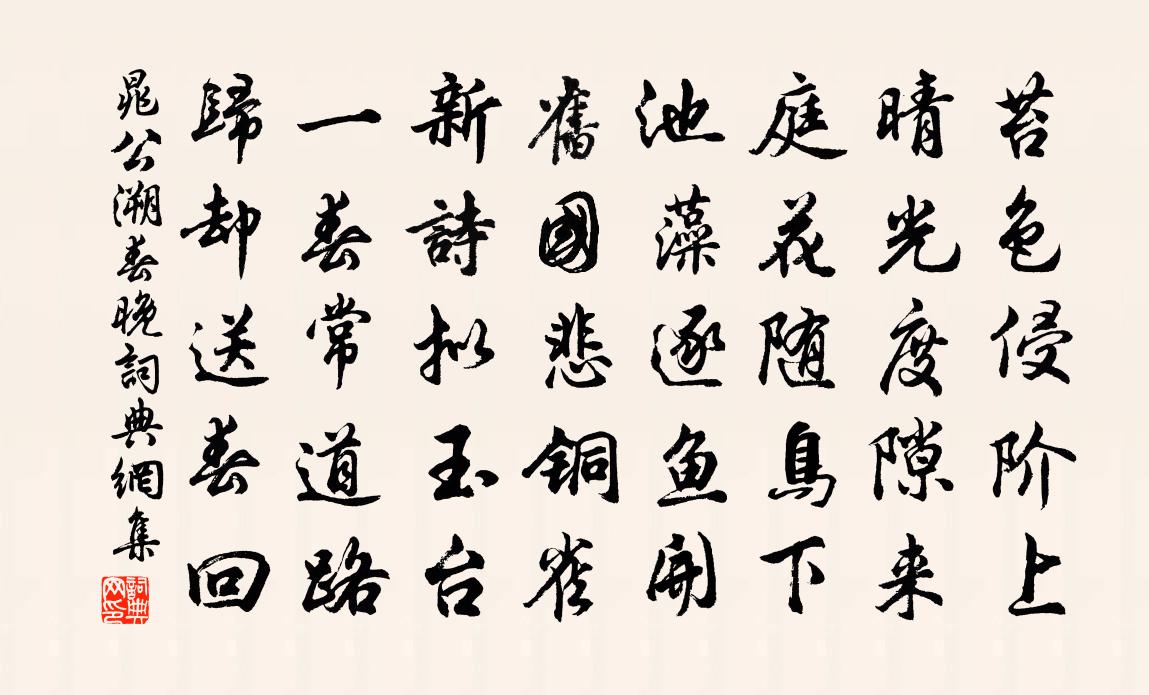 苔色侵阶上
晴光度隙来
庭花随鳥下
池藻逐鱼開
舊國悲铜雀
新詩拟玉台
一春常道路
歸却送春回
晁公溯春晚詞典網集
詞典网印